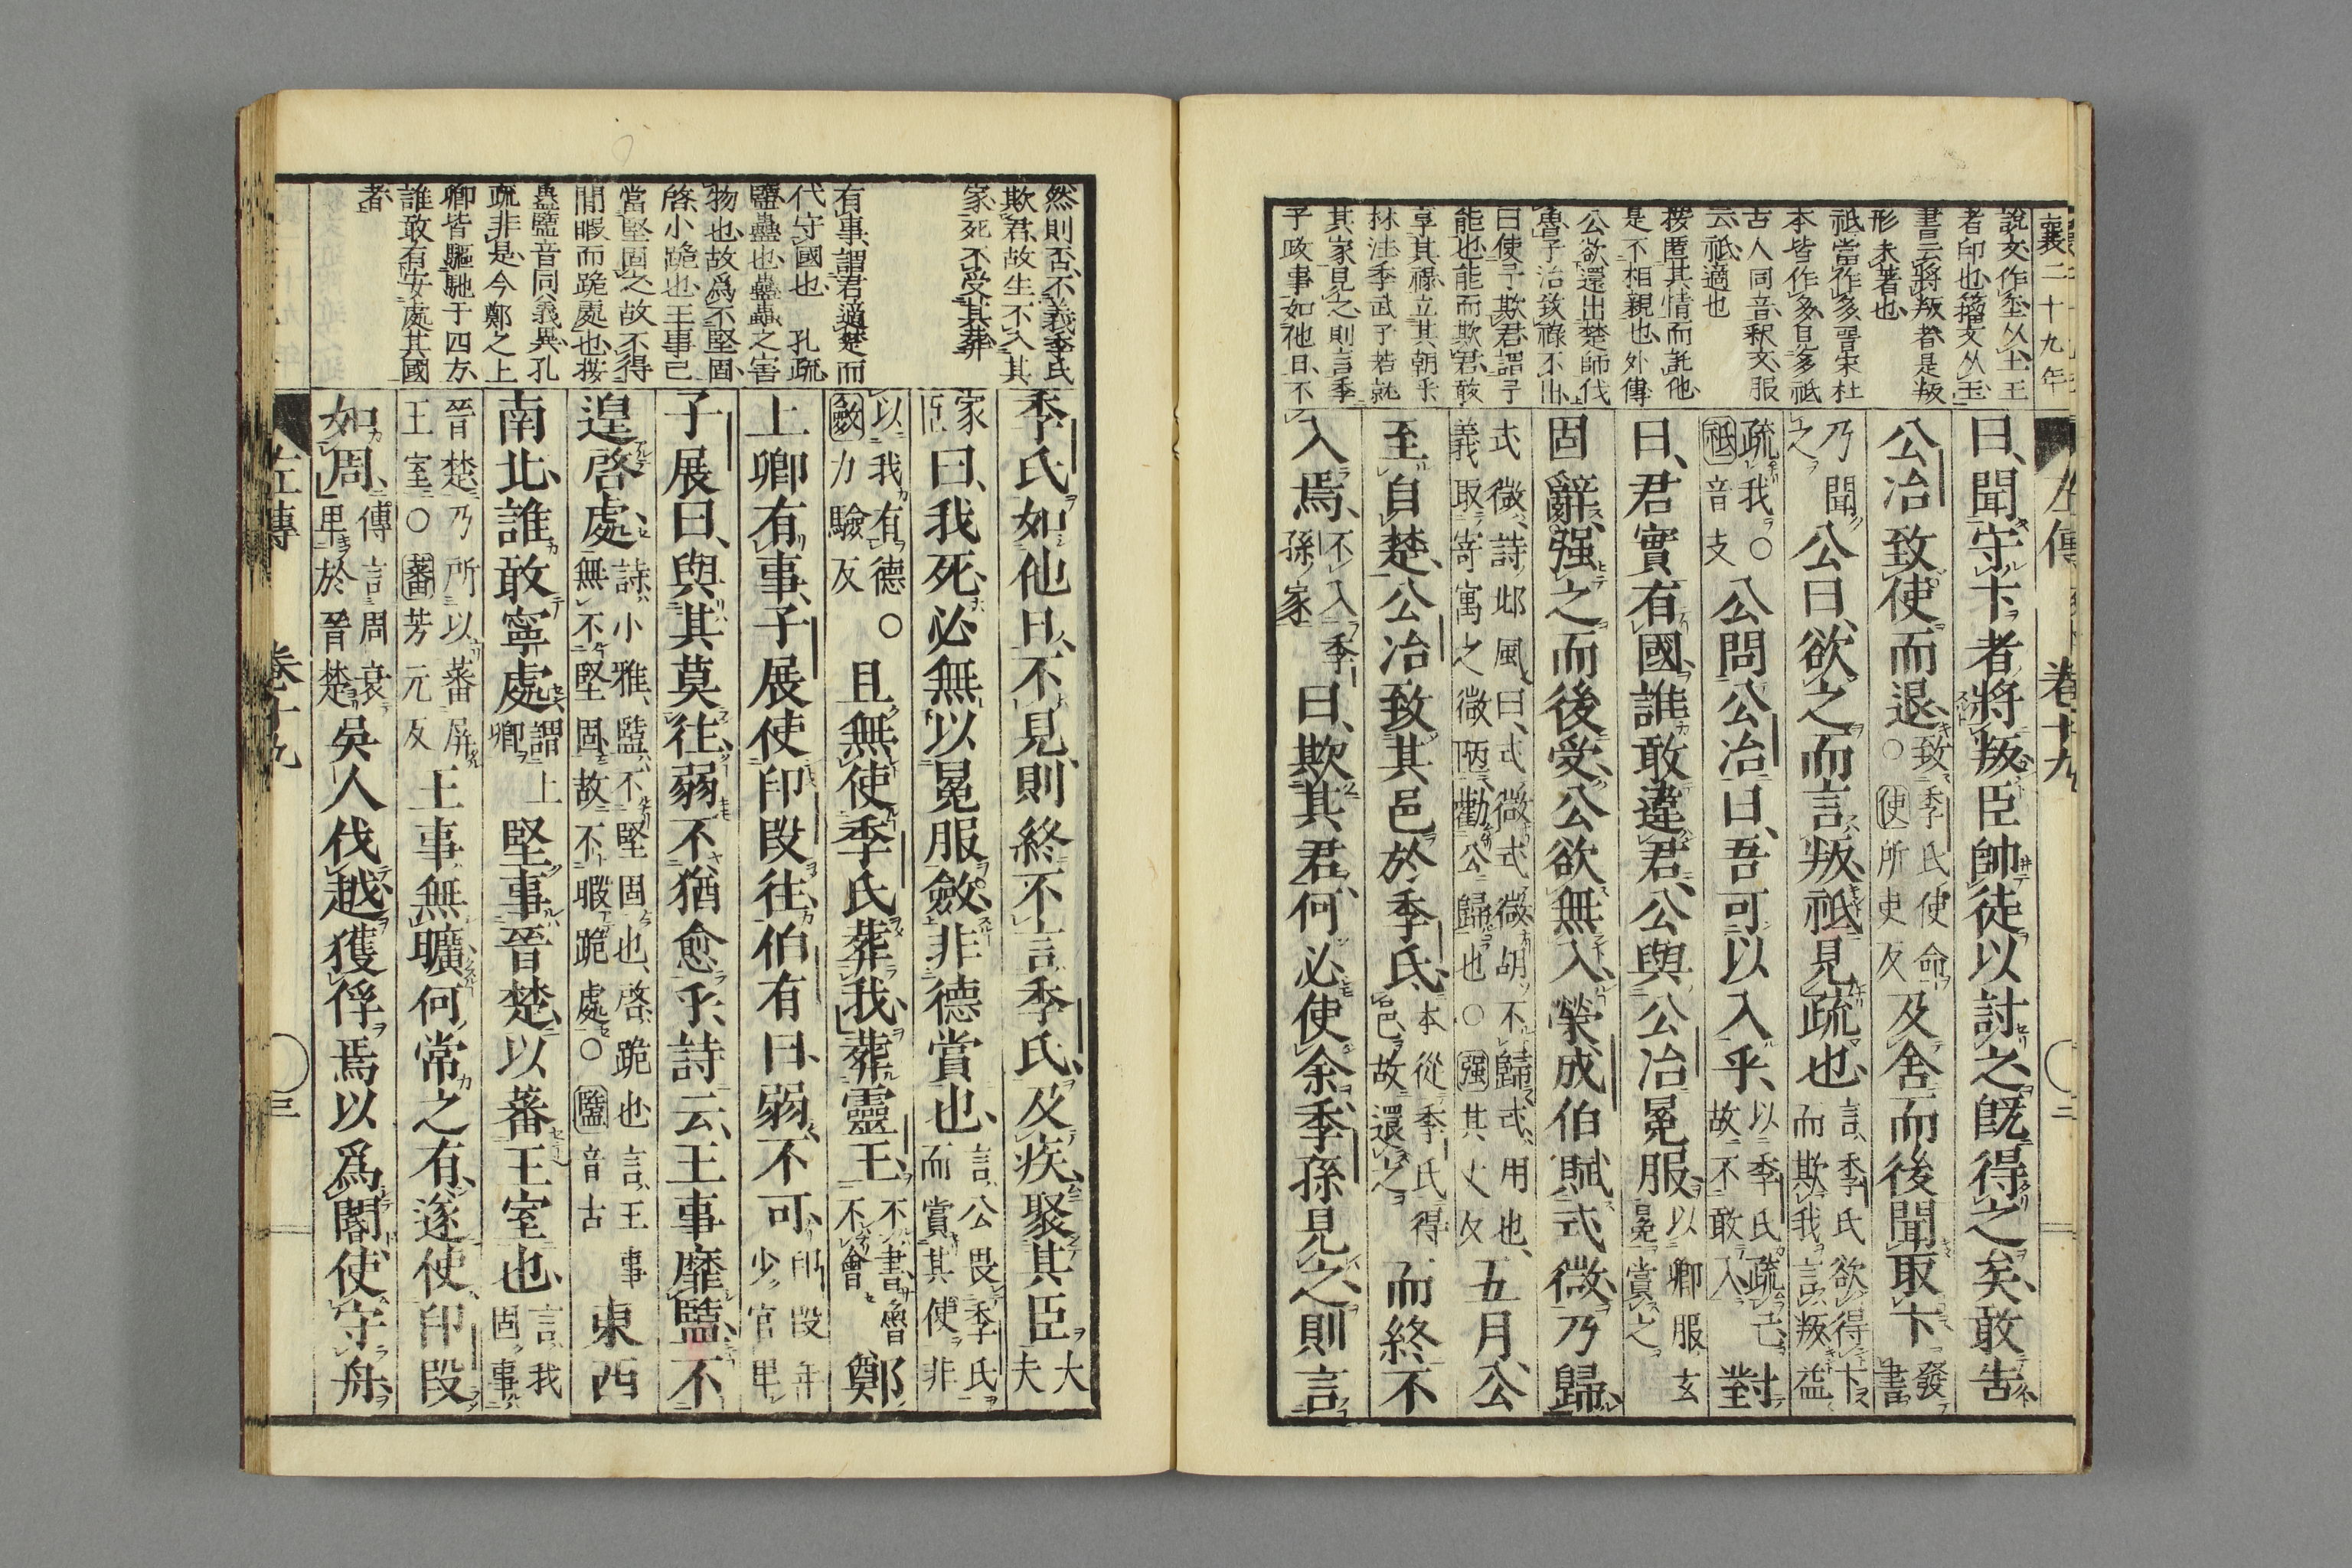 襄二十九年
說文作壐从土王
者印也籒文从玉
書云將叛者是叛
形未著也
祗當作多晋宋杜
本皆作多見多祗
古人同音釈文服
云祗適也
按匿其情而託他
是不相親也外傳
公欲還出楚師伐
魯子冶致祿不出
曰使子欺君謂子
能也能而欺君敢
享其祿立其朝乎
林注季武子若就
其家見之則言季
子政事如他日不
左傳 卷十九 二
曰、聞守卞者將叛臣帥徒以討之既得之矣敢告
公冶致使而退、致季氏使命○使所吏反及舍而後聞取卞、發書
乃聞之公曰、欲之而言叛、祗見疏也、言季氏欲得卞而欺我言叛益
疏我○祗音支公問公冶曰、吾可以入乎、以季氏疏己故不敢入對
曰、君實有國誰敢違君、公與公冶冕服以卿服玄冕賞之
固辭强之而後受、公欲無入榮成伯賦式微乃歸、
式微詩邶風曰、式微式微胡不歸式、用也、義取寄寓之微陋勸公歸也○强其丈反五月、公
至自楚、公冶致其邑於季氏、本從季氏得邑、故還之而終不
入焉、不入季孫家曰、欺其君、何必使余季孫見之、則言
然則否、不義季氏
欺君、故生不入其
家、死不受其葬
有事、謂君適楚而
代守國也 孔疏
盬蠱也蠱蟲之害
物也故爲不堅固
啓小跪也王事已
當堅固之故不得
閒暇而跪處也按
蠱盬音同義異孔
疏非是今鄭之上
卿皆驅馳于四方
誰敢有安處其國
者
季氏如他日、不見則終不言季氏、及疾、聚其臣大夫
家臣曰、我死、必無以冕服斂、非德賞也、言公畏季氏而賞其使非
以我有德○斂力驗反且無使季氏葬我、葬靈王、不書、魯不會鄭
上卿有事、子展使印段往、伯有曰、弱、不可、印段年少官卑
子展曰、與其莫往弱不猶愈乎、詩云、王事靡盬、不
遑啓處、詩小雅、盬、不堅固也、啓、跪也言王事無不堅固故不暇跪處○盬音古東西
南北誰敢寧處、謂上卿堅事晉楚、以蕃王室也、言我固事
晉楚乃所以蕃屏王室○蕃芳元反王事無曠何常之有、遂使印段
如周、傳言周衰卑於晉楚吳人伐越獲俘焉以爲閽使守舟、
左傳 卷十九 三